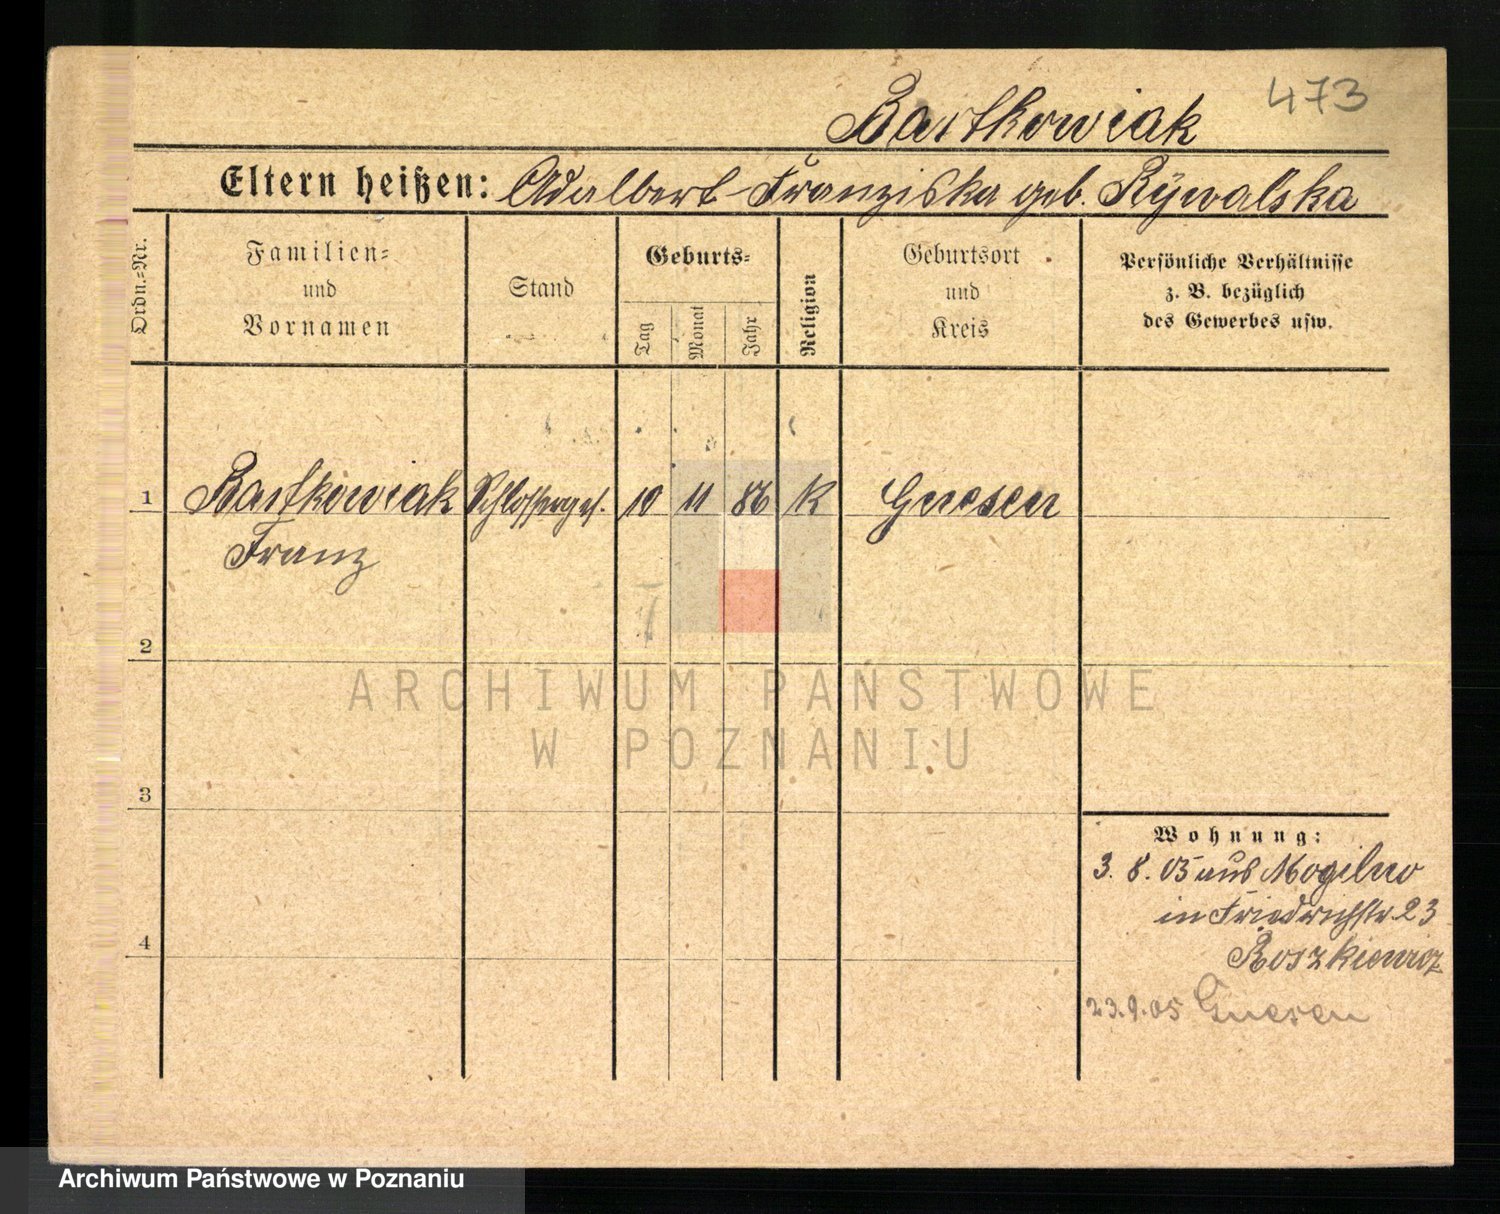 473
Bartkowiak
Eltern heißen: Adalbert - Franziska geb. Rÿwalska
Ordn.-Nr.
Familien-
und
Vornamen
Stand
Geburts-
Tag
Monat
Jahr
Religion
Geburtsort
und
Kreis
Persönliche Verhältnisse
z. B. bezüglich
des Gewerbes usw.
1 Bartkowiak Schlosserges. 10 11 86 K Gnesen
Franz
2
ARCHIWUM PAŃSTWOWE
W POZNANIU
3
Wohnung:
3. 8. 05 aus Mogilno
in Friedrichstr. 23
Roszkiewicz
4
23.9.05 Gnesen
Archiwum Państwowe w Poznaniu